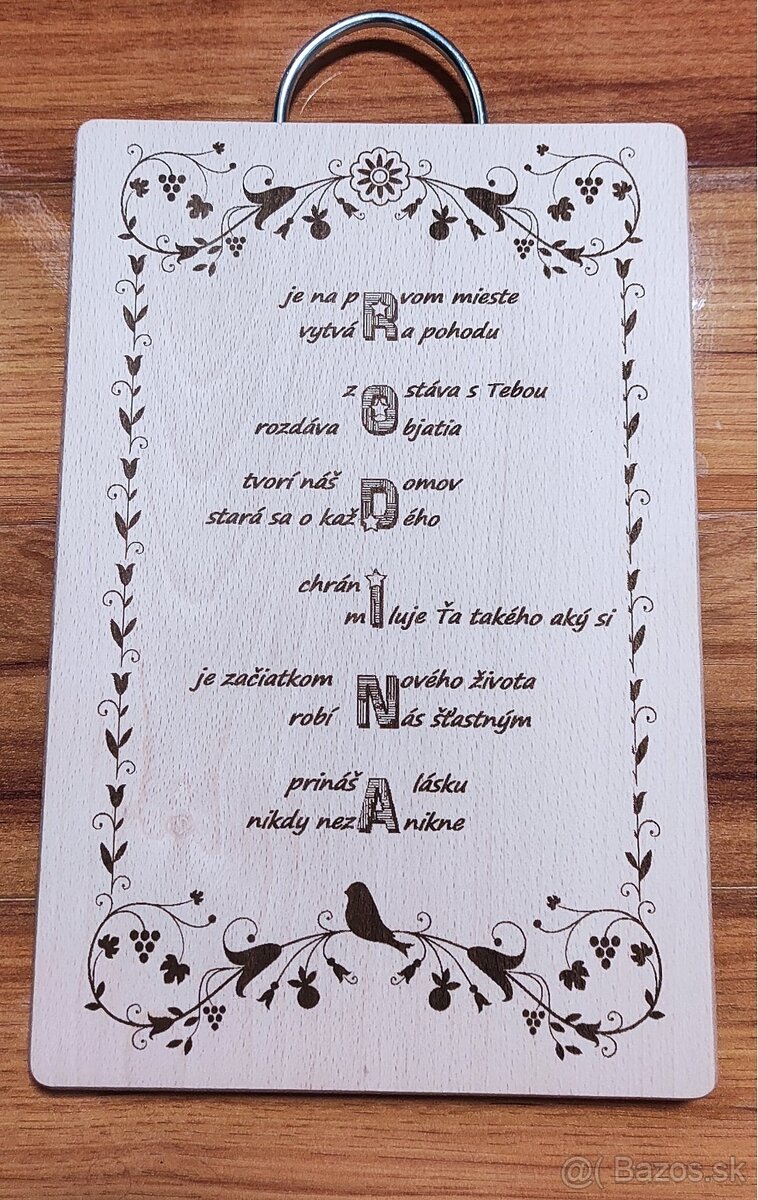 je na pRvom mieste
vytváRa pohodu
zOstáva s Tebou
rozdáva Objatia
tvorí náš Domov
stará sa o kažDého
chránI
mIluje Ťa takého aký si
je začiatkom Nového života
robí Nás šťastným
prinášA lásku
nikdy nezAnikne
@( Bazos.sk